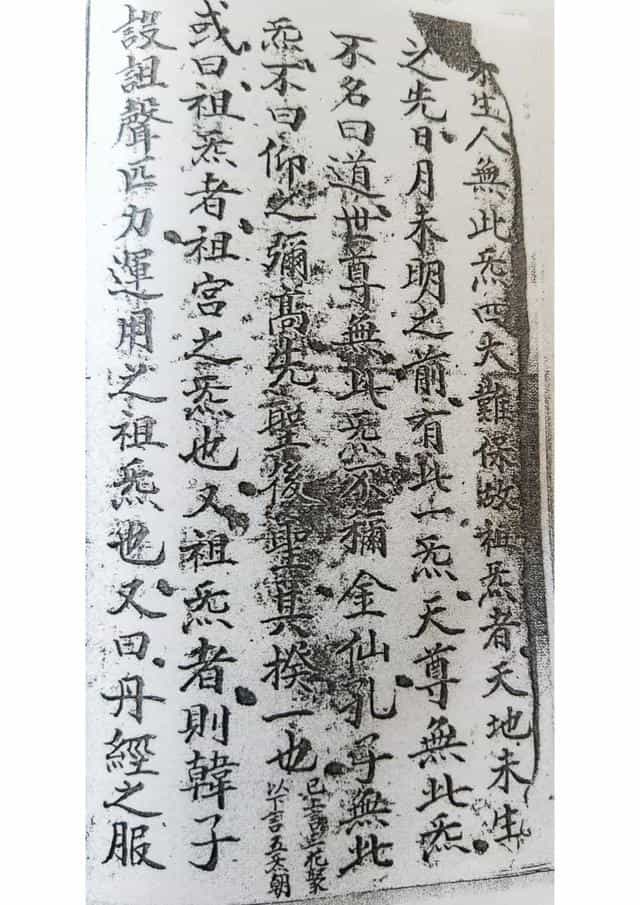 不生人無此炁四大難保故祖炁者天地未生
之先日月未明之前有此一炁天尊無此炁
不名曰道世尊無此炁不稱金仙孔子無此
炁不曰仰之彌高先聖後聖其揆一也
已上言三花聚
以下言五炁朝
或曰祖炁者祖宮之炁也又祖炁者則韓子
設詛聲匹力運用之祖炁也又曰丹經之服